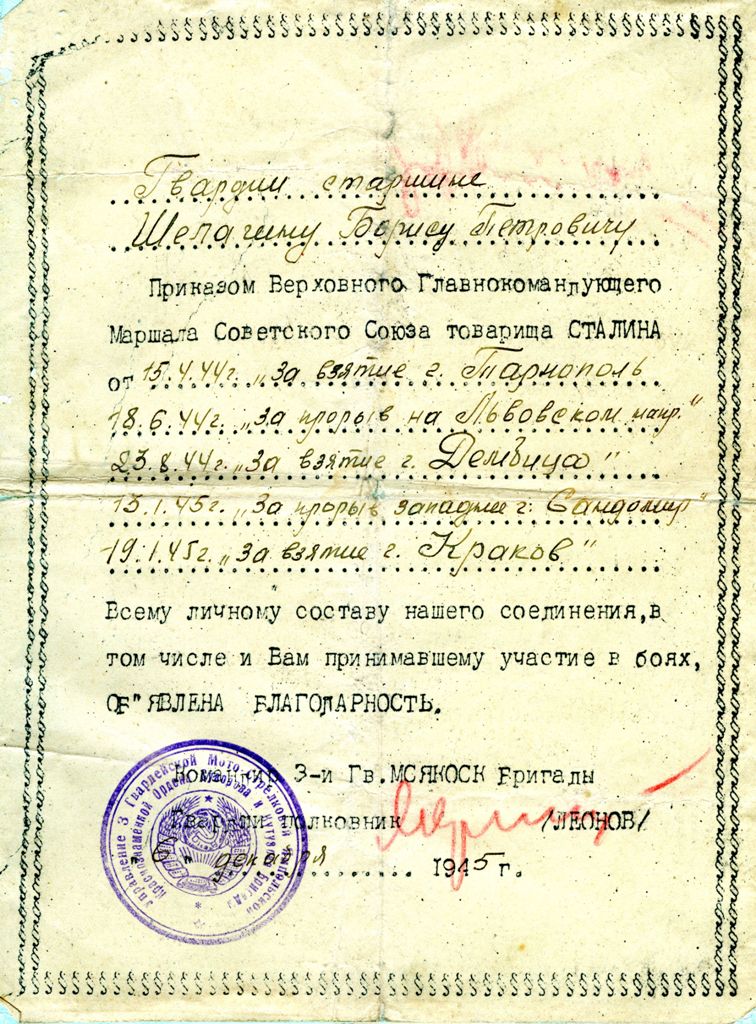 Гвардии старшине
Шелагину Борису Петровичу
Приказом Верховного Главнокомандующего
Маршала Советского Союза товарища СТАЛИНА
от 15.4.44г. „За взятие г. Тарнополь
18.6.44г. „За прорыв на Львовском напр."
23.8.44г. „За взятие г. Дембица"
13.1.45г. „За прорыв западнее г. Сандомир"
19.1.45г. „За взятие г. Краков"
Всему личному составу нашего соединения, в
том числе и Вам принимавшему участие в боях,
ОБ"ЯВЛЕНА БЛАГОДАРНОСТЬ.
Командир 3-й Гв.МСЯКОСК Бригады
Гвардии полковник /ЛЕОНОВ/
декабря 1945 г.
Управление 3 Гвардейской Мото-Стрелковой
Краснознамённой Ордена Суворова и Кутузова Бригады